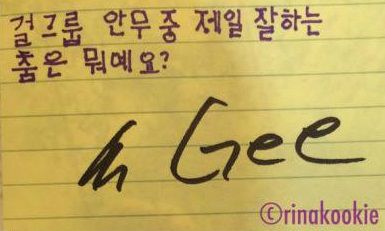 걸그룹 안무 중 제일 잘하는
춤은 뭐예요?
Gee
©rinakookie